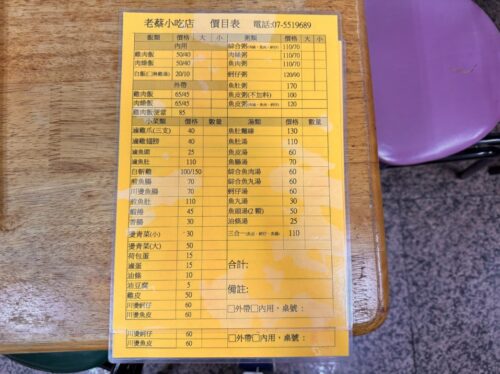 老蔡小吃店 價目表 電話:07-5519689
飯類 價格 大 小 粥類 價格 大 小
內用 綜合粥 110/70
雞肉飯 50/40 肉絲粥 110/70
肉燥飯 50/40 魚肉粥 110/70
白飯 20/10 蚵仔粥 120/90
外帶 魚肚粥 170
雞肉飯 65/45 魚皮粥(不加料) 100
肉燥飯 65/45 魚皮粥 120
雞肉飯便當 85
小菜類 價格 數量 湯類 價格 數量
滷雞爪(三支) 40 魚肚麵線 130
滷雞翅膀 40 魚肚湯 110
滷魚頭 25 魚皮湯 60
滷魚肚 110 魚腸湯 70
白斬雞 100/150 綜合魚肉湯 60
煎魚腸 70 綜合魚丸湯 60
川燙魚腸 70 蚵仔湯 60
煎魚肚 110 魚丸湯 30
蝦捲 45 魚頭湯(2顆) 50
苦腸 30 油條湯 25
燙青菜(小) 30 三合一 110
燙青菜(大) 50
荷包蛋 15 合計:
滷蛋 15
油條 10
油豆腐 5 備註:
雞皮 50
川燙蚵仔 60 □外帶□內用,桌號:
川燙魚皮 60
川燙蚵仔 60 □外帶□內用,桌號:
川燙魚皮 60